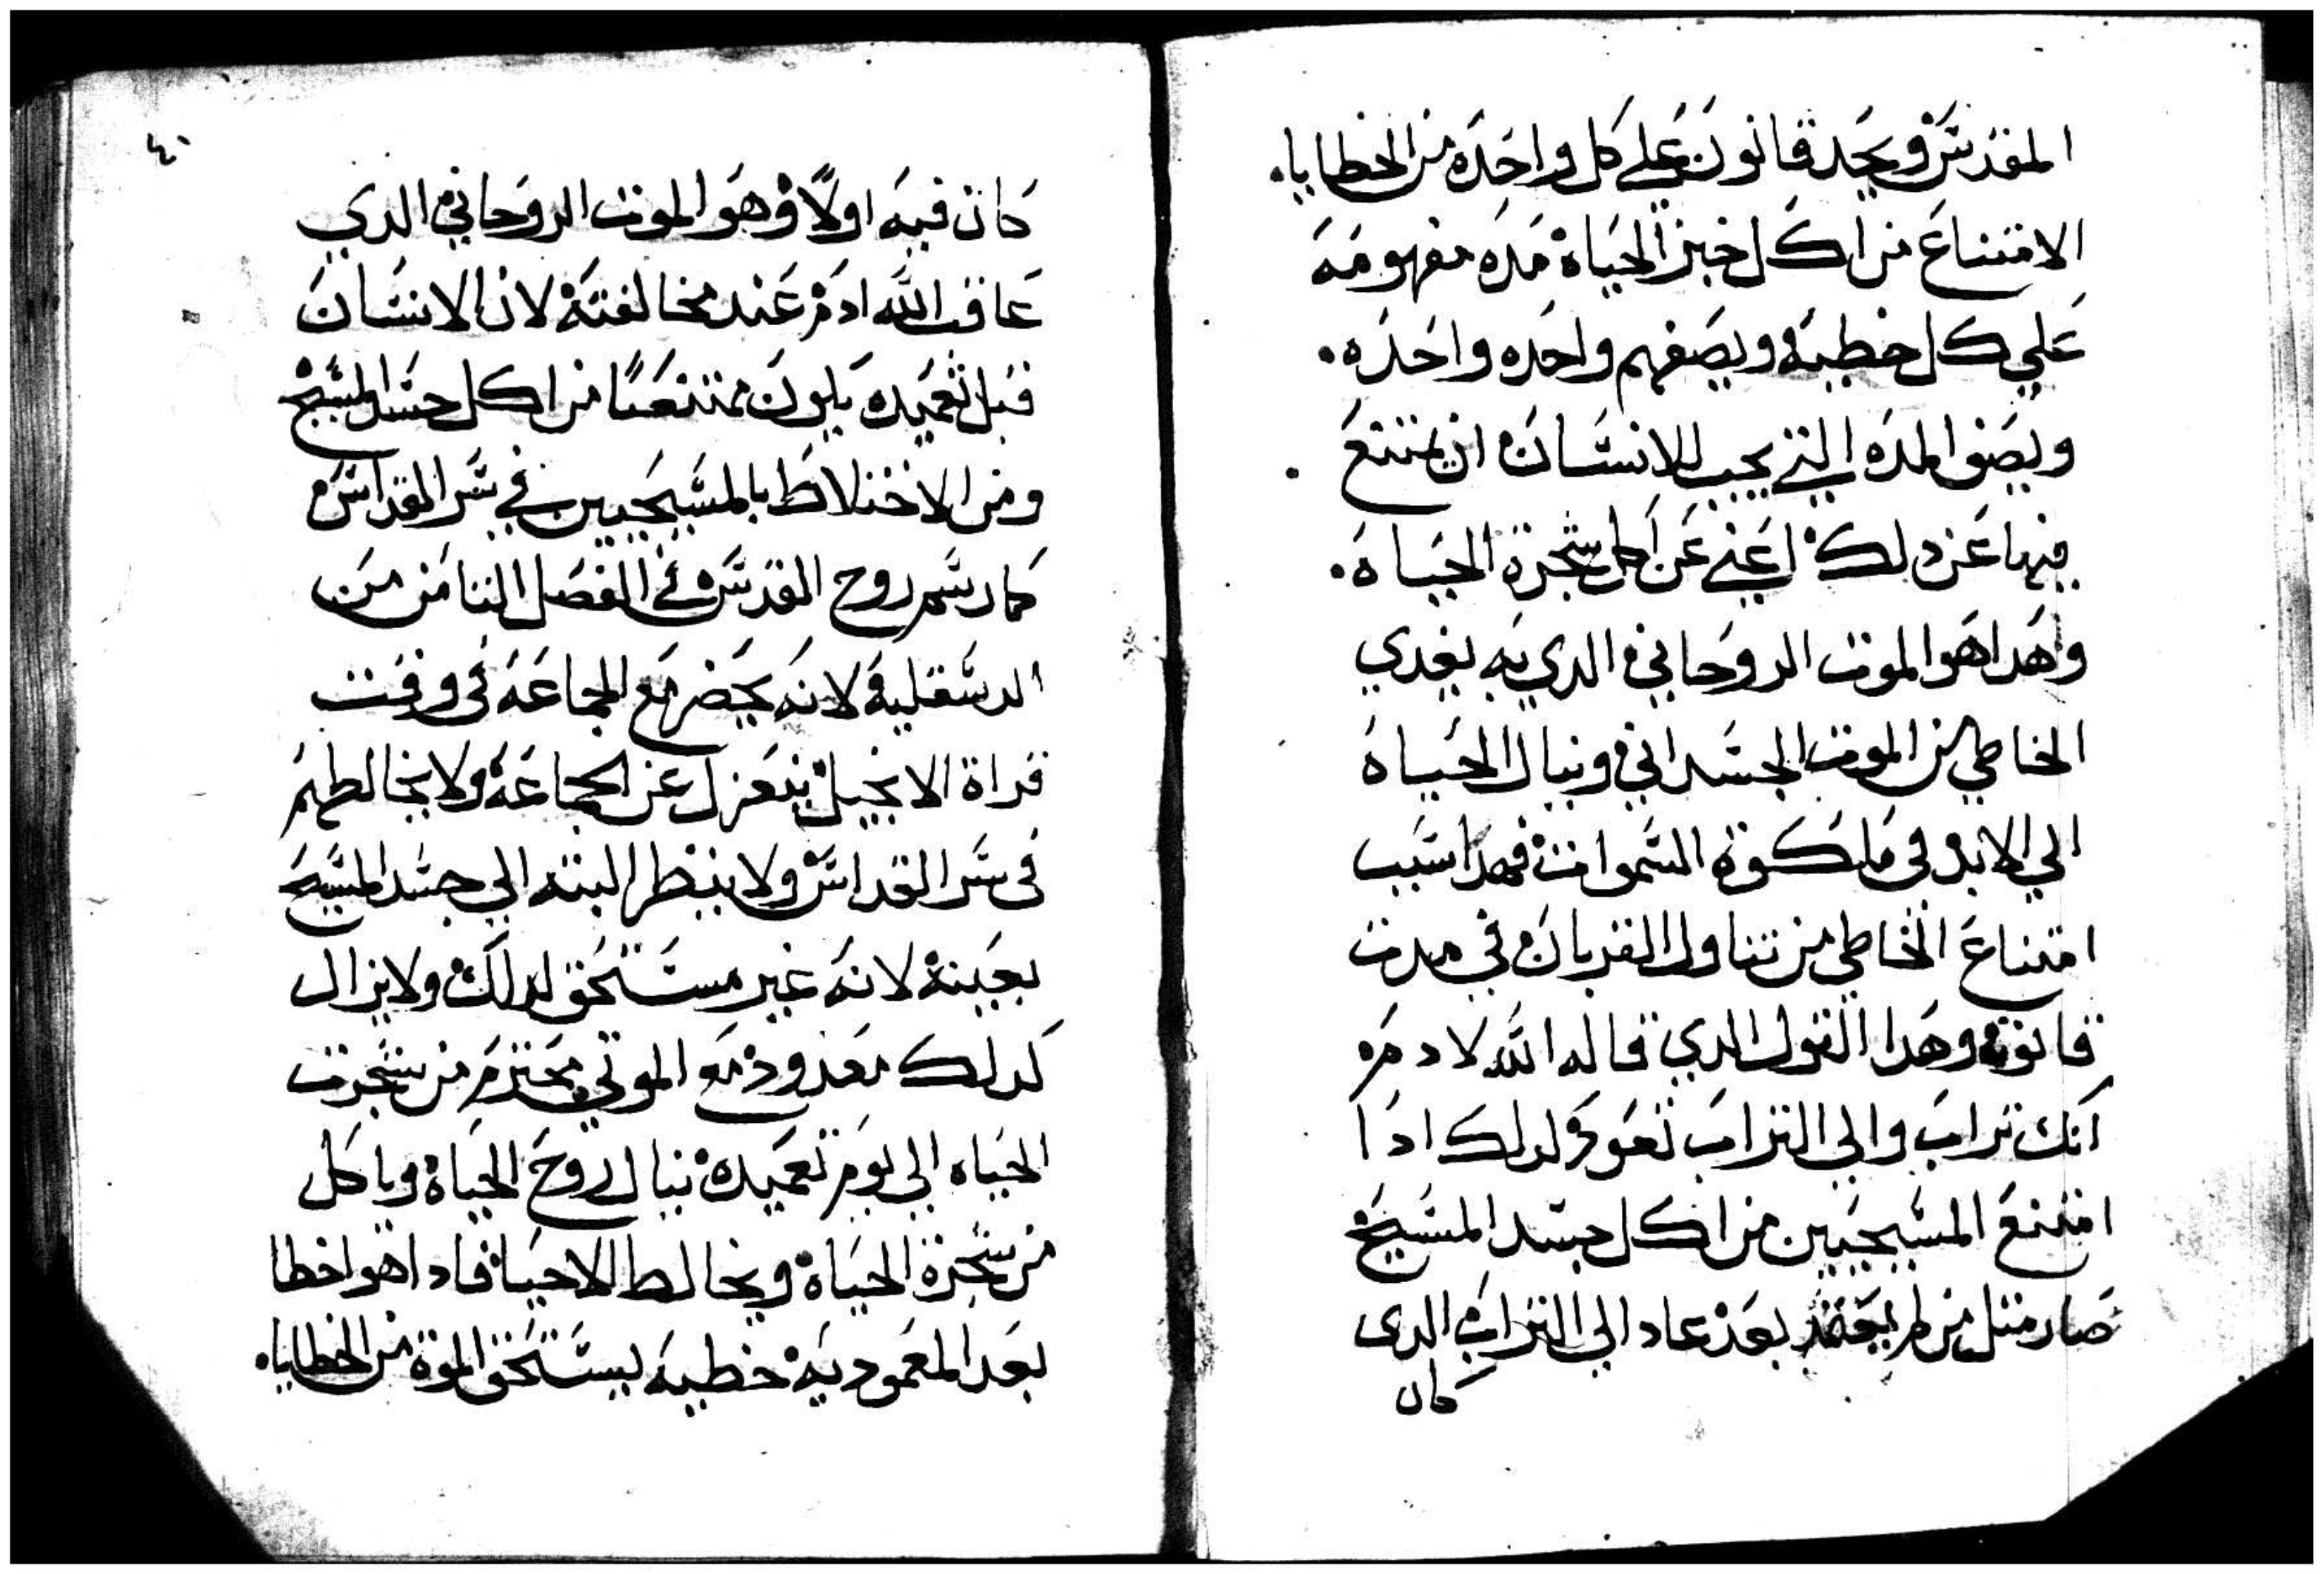 المقدس ويجد قانون علي كل واحده من الخطايا.
الامتناع من اكل خبز الحياة مده مفهومه
علي كل خطيه ويصفهم واحده واحده.
ويصف المده التي يجب للانسان ان يمتنع
فيها عن دلك اعني عن اكل شجرة الحياه.
واهدا هو الموت الروحاني الدي به يفدي
الخاطي من الموت الجسداني وينال الحياه
الي الابد في ملكوة السموات فهدا سبب
امتناع الخاطي من تناول القربان في مدت
قانونه وهدا القول الدي قاله الله لادم
انك تراب والي التراب تعود لدلك ادا
امتنع المسيحيين من اكل جسد المسيح
صار مثل من لم يعتمد بعد عاد الي التراب الدى
كان
٤٠
كان فيه اولًا وهو الموت الروحاني الدي
عاقب الله ادم عند مخالفته لان الانسان
قبل تعميده يكون ممتنعًا من اكل جسد المسيح
ومن الاختلاط بالمسيحيين في سر القداس
كما رسم روح القدس في الفصل الثامن من
الدسقليه لانه يحضر مع الجماعه في وقت
قراة الانجيل ينعزل عن الجماعه ولا يخالطهم
في سر القداس ولا ينظر البته الي جسد المسيح
بعينه لانه غير مستحق لدلك ولا يزال
كدلك معدود مع الموتي محترم من شجرت
الحياه الي يوم تعميده ينال روح الحياة وياكل
من شجرة الحياة ويخالط الاحيا فادا هو اخطا
بعد المعموديه خطيه يستحق الموة من الخطايا.